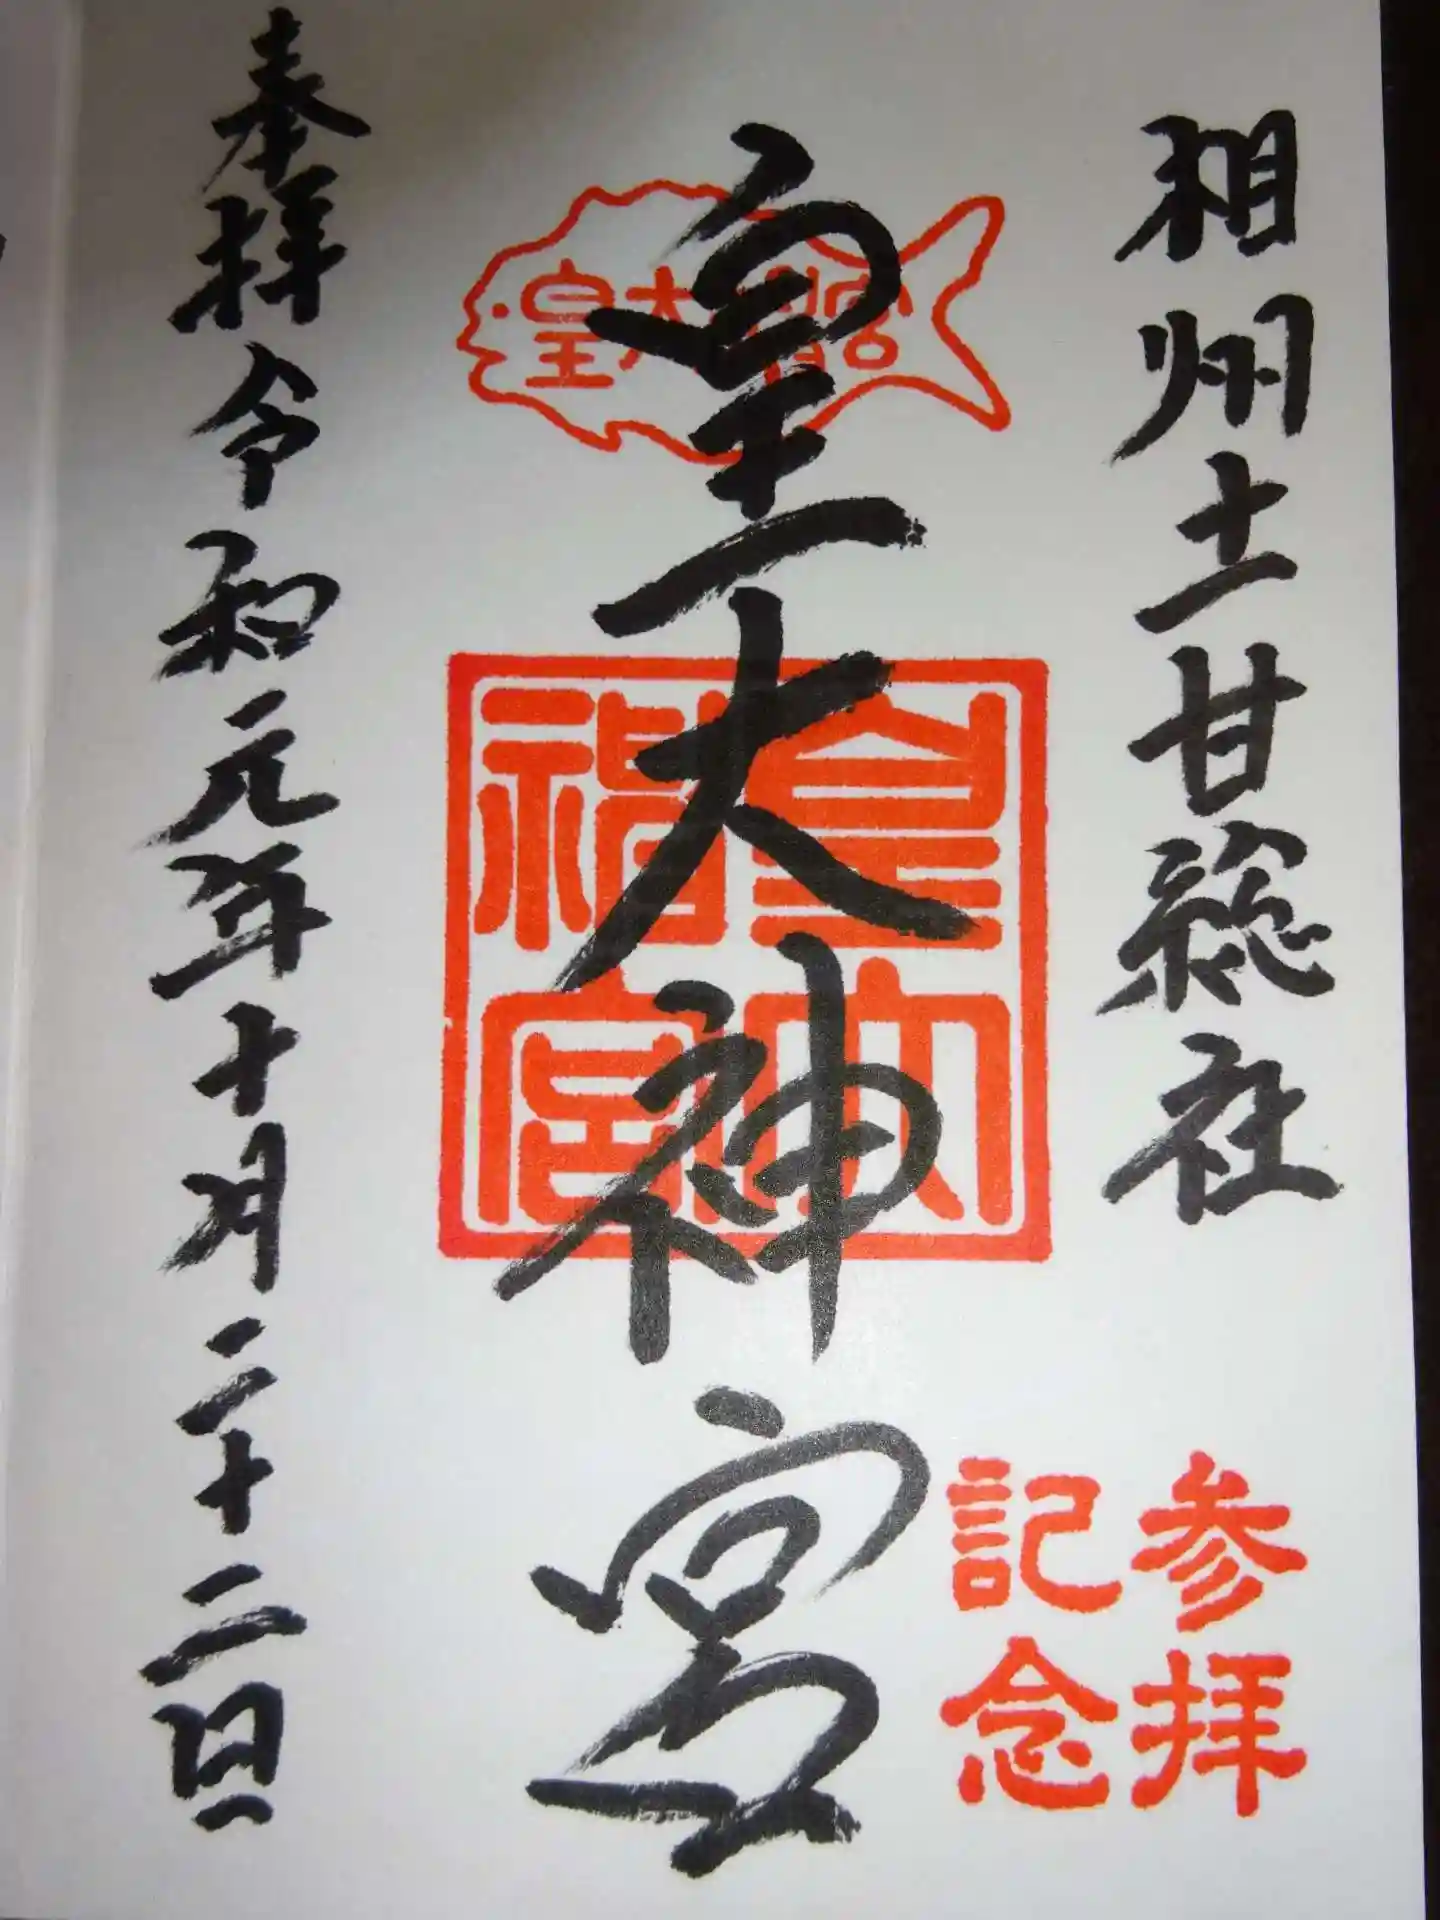 相州土甘総社
参拝
記念
皇大神宮
皇大神宮
皇大神宮
奉拝令和元年十月二十二日